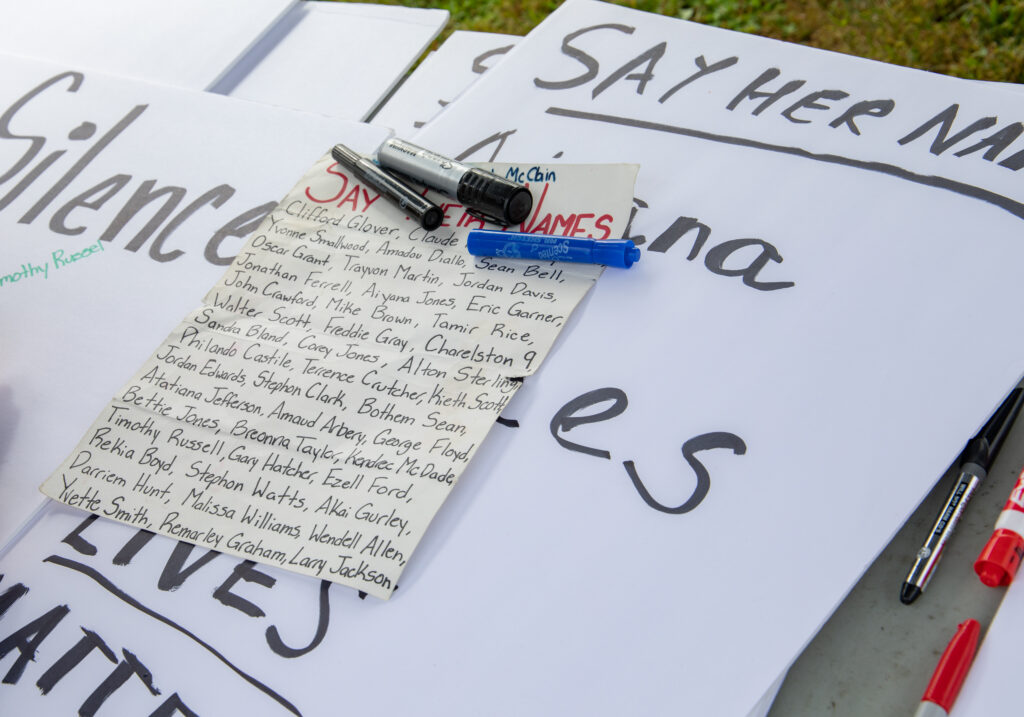 SAY HER NAM
Silence
imothy Russell
McClain
SAY THEIR NAMES
Clifford Glover, Claude
Yvonne Smallwood, Amadou Diallo, Sean Bell,
Oscar Grant, Trayvon Martin, Jordan Davis,
Jonathan Ferrell, Aiyana Jones, Eric Garner,
John Crawford, Mike Brown, Tamir Rice,
Walter Scott, Freddie Gray, Charelston 9
Sandra Bland, Corey Jones, Alton Sterling,
Philando Castile, Terrence Crutcher, Kieth Scott
Jordan Edwards, Stephon Clark, Bothem Sean,
Atatiana Jefferson, Amaud Arbery, George Floyd,
Bettie Jones, Breonna Taylor, Kendrec McDade,
Timothy Russell, Gary Hatcher, Ezell Ford,
Rekia Boyd, Stephon Watts, Akai Gurley,
Darriem Hunt, Malissa Williams, Wendell Allen,
Yvette Smith, Remarley Graham, Larry Jackson,
ina
es
LIVES
MATTE